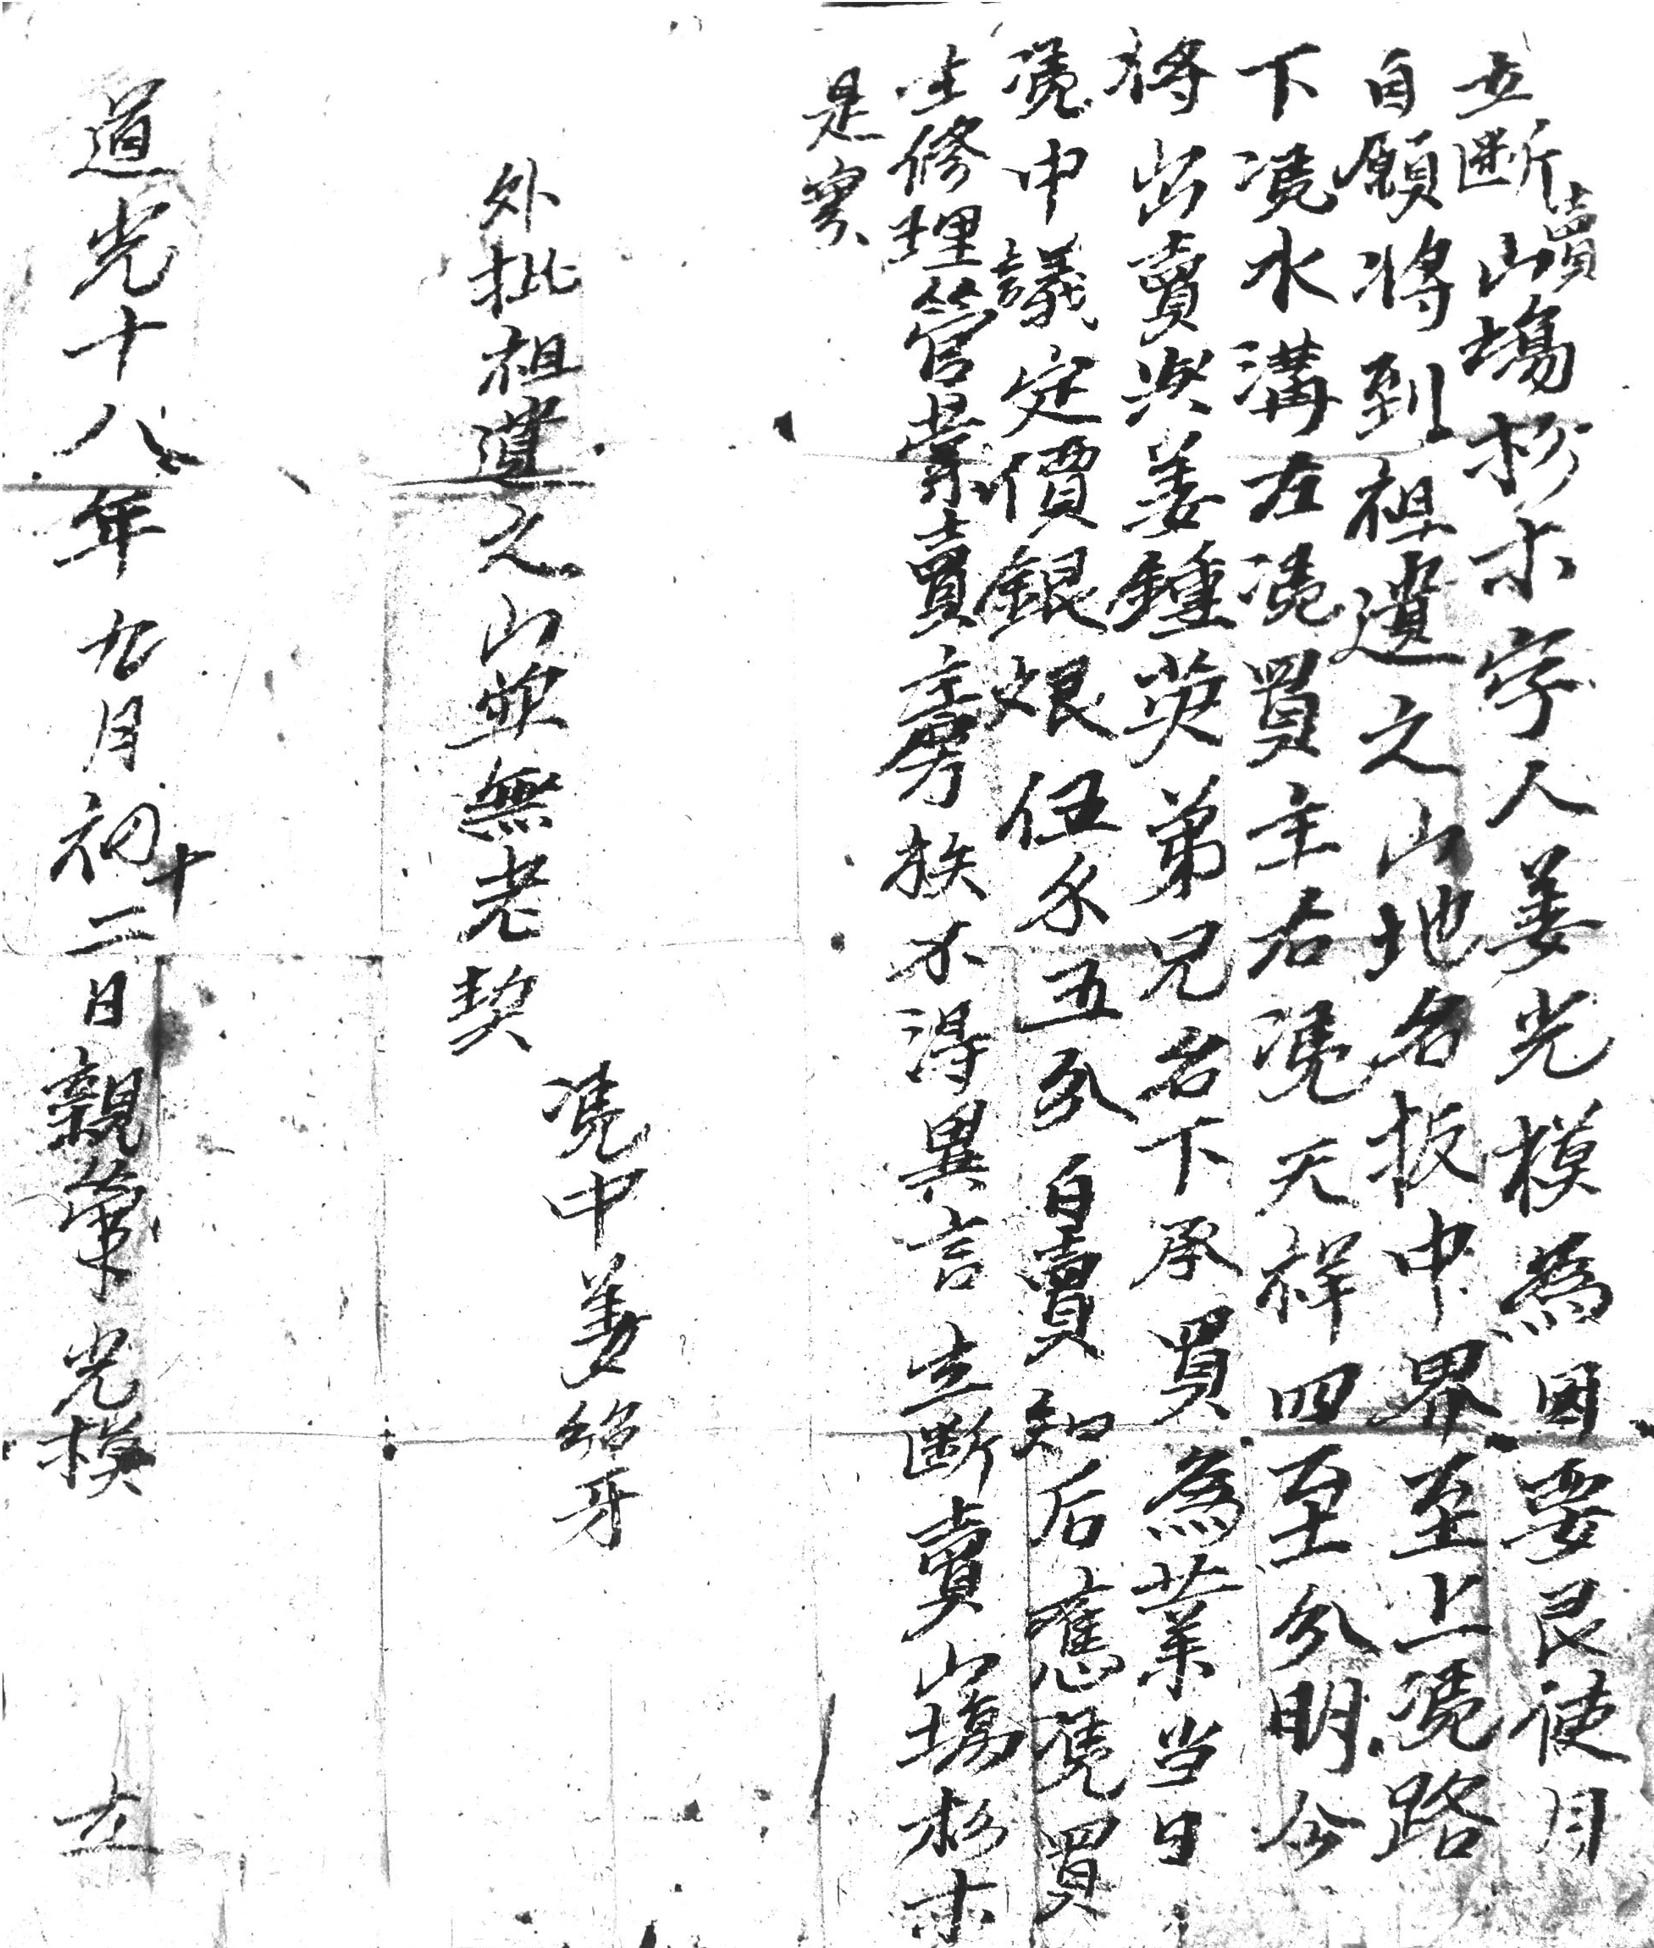 立断賣山塲杉木字人姜光模為因要艮使用
自願將到祖遺之山地名板中界至上凴路
下凴水溝左凴買主右凴天祥四至分明今
將出賣與姜鍾英弟兄名下承買為業当日
凴中議定價銀艮伍不五分自賣知后應凴買
主修理管業賣主房族不得異言立断賣山塲杉木
是實
外批祖遺之山並無老契
凴中姜紹牙
道光十八年九月初十二日親筆光模 立